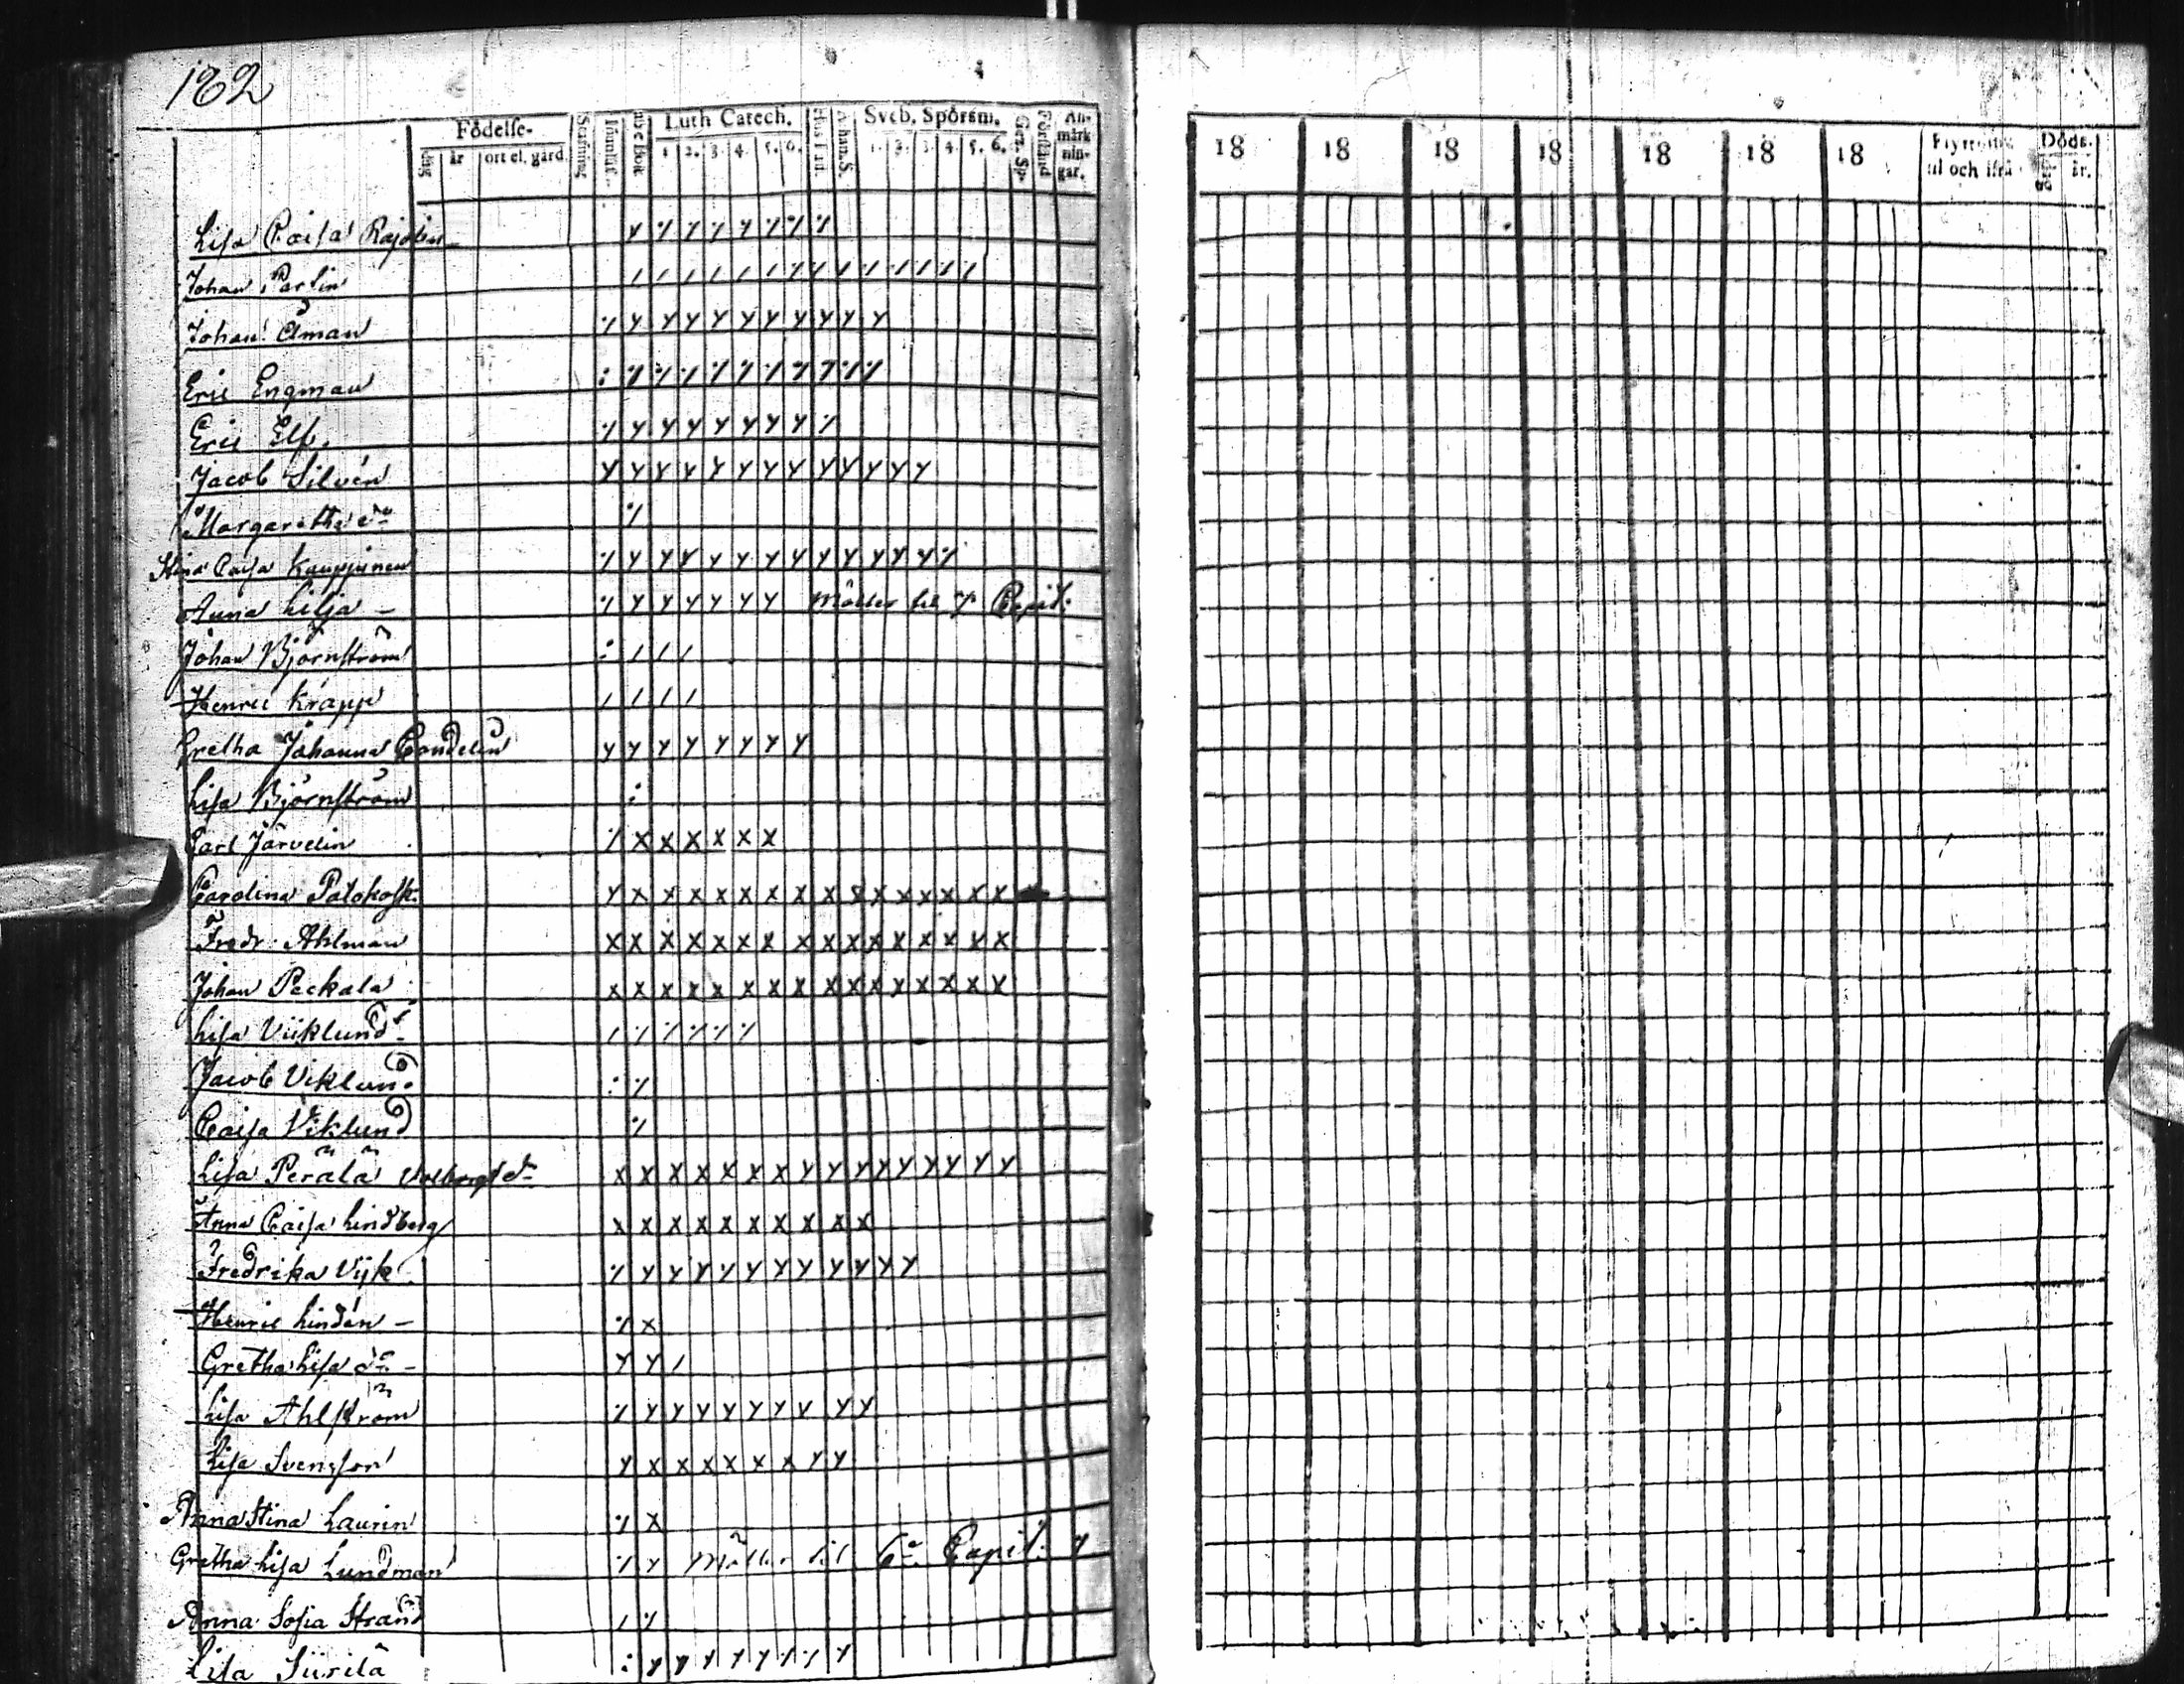 162
Födelse- Luth Catech. Sveb. Spörsm. An-märk nin-gar.
dag år ort el. gård. Stafning 1. 2. 3. 4. 5. 6. 1. 2. 3. 4. 5. 6. Förstånd
18 18 18 18 18 18 18 Flyttning til och ifrå Döds-
dag år.
Lisa Caisa
Johan Parlin
Johan Åman
Eric Engman
Eric Elf.
Jacob Silvén
Margaretha do
Stina Caisa Kauppinen
Anna Lilja - til Capit:
Johan Björnström
Henric Krapp
Gretha Johanna Candelin
Lisa Björnström
Carl Järvelin
Carolina Palokosk:
Fredr. Ahlman
Johan Peckala
Lisa Viiklund
Jacob Viklund
Caisa Viklund
Lisa Perälä
Anna Caisa Lindberg
Fredrika Vijk
Henric Lindén -
Gretha Lisa do -
Lisa Ahlström
Lisa Svensson
Anna Stina Laurin
Gretha Lisa Lundman til 6te Capit.
Anna Sofia Strand
Lisa Siirilä